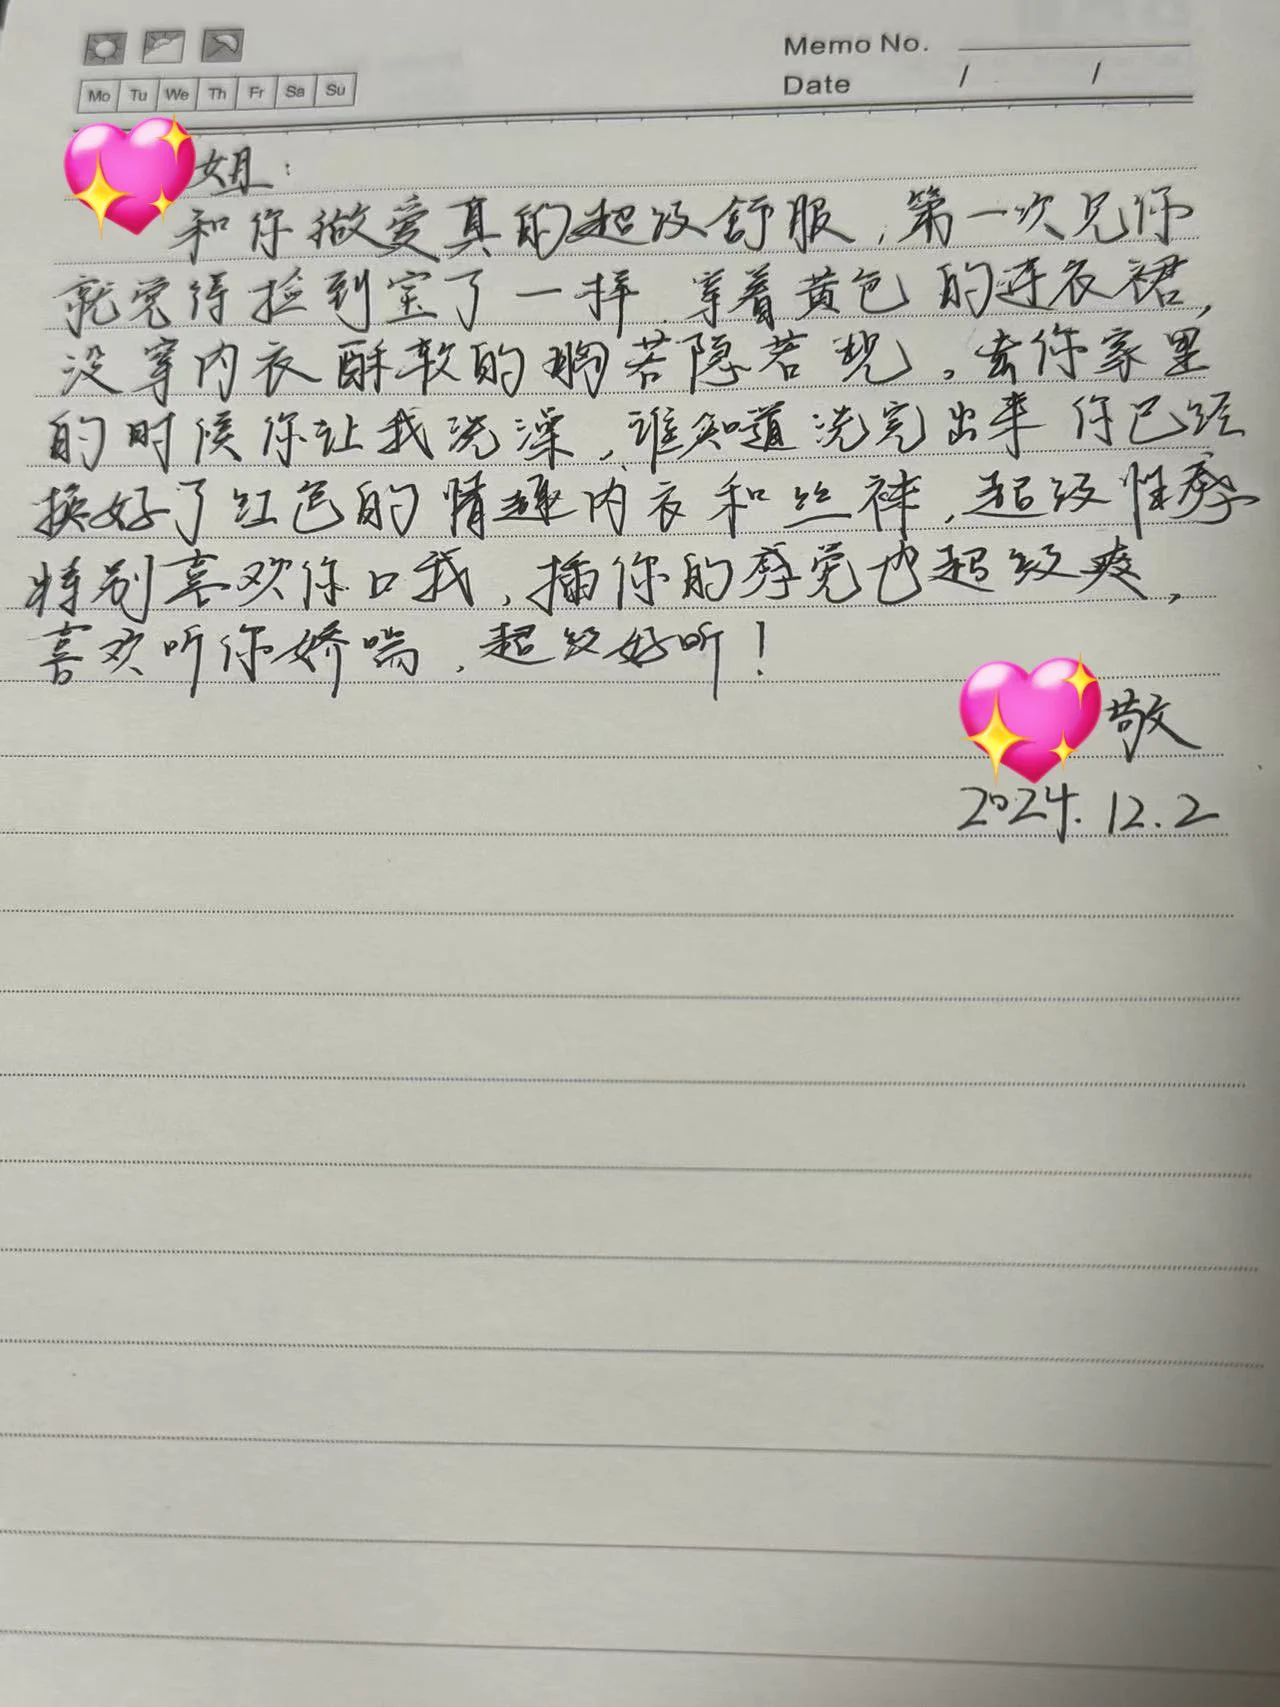 Memo No.
Date / /
Mo Tu We Th Fr Sa Su
姐：
和你做爱真的超级舒服，第一次见你
就觉得捡到宝了一样，穿着黄色的连衣裙，
没穿内衣酥软的胸若隐若现，去你家里
的时候你让我洗澡，谁知道洗完出来你已经
换好了红色的情趣内衣和丝袜，超级性感
特别喜欢你口我，插你的感觉也超级爽，
喜欢听你娇喘，超级好听！
敬
2024.12.2